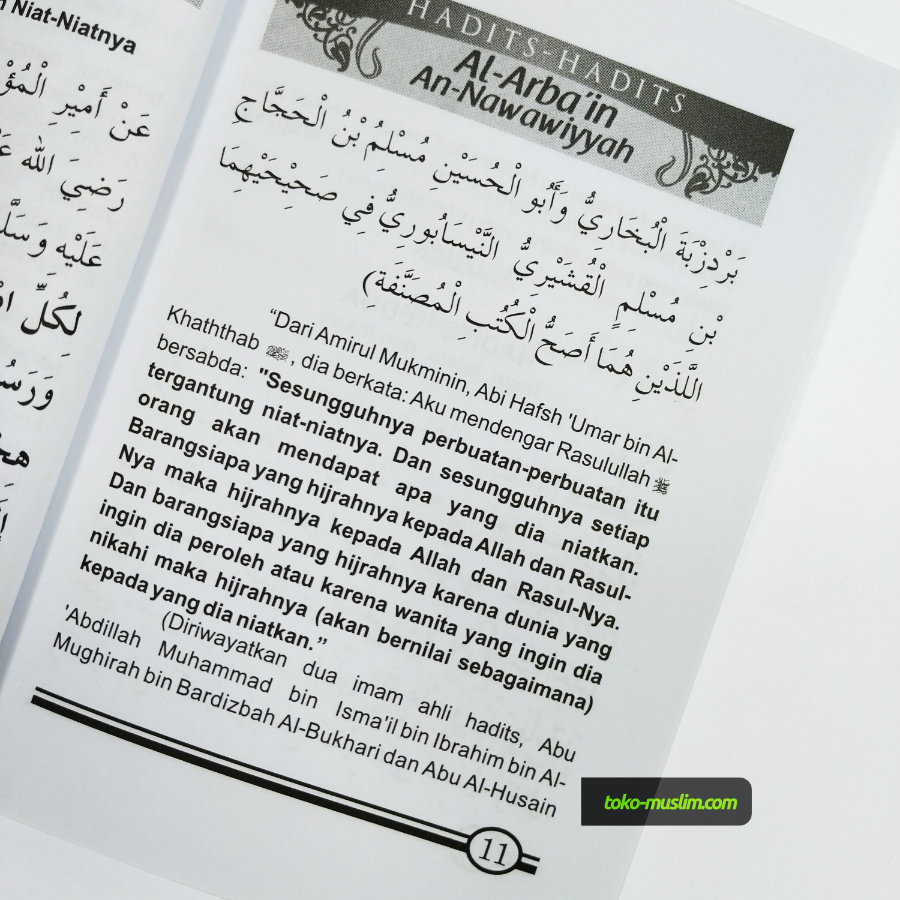 n Niat-Niatnya
عَنْ أَمِيْرِ الْمُؤْ
رَضِيَ الله عَ
عَلَيْه وَسَلَّ
لِكُلِّ ا
وَرَسُ
هِجْ
إِ
HADITS-HADITS
Al-Arba'in
An-Nawawiyyah
بَرْدِزْبَةَ الْبُخَارِيُّ وَأَبُو الْحُسَيْنِ مُسْلِمُ بْنُ الْحَجَّاجِ
بْنِ مُسْلِمٍ الْقُشَيْرِيُّ النَّيْسَابُورِيُّ فِي صَحِيْحَيْهِمَا
اللَّذَيْنِ هُمَا أَصَحُّ الْكُتُبِ الْمُصَنَّفَةِ)
“Dari Amirul Mukminin, Abi Hafsh 'Umar bin Al-
Khaththab , dia berkata: Aku mendengar Rasulullah ﷺ
bersabda: "Sesungguhnya perbuatan-perbuatan itu
tergantung niat-niatnya. Dan sesungguhnya setiap
orang akan mendapat apa yang dia niatkan.
Barangsiapa yang hijrahnya kepada Allah dan Rasul-
Nya maka hijrahnya kepada Allah dan Rasul-Nya.
Dan barangsiapa yang hijrahnya karena dunia yang
ingin dia peroleh atau karena wanita yang ingin dia
nikahi maka hijrahnya (akan bernilai sebagaimana)
kepada yang dia niatkan.”
(Diriwayatkan dua imam ahli hadits, Abu
'Abdillah Muhammad bin Isma'il bin Ibrahim bin Al-
Mughirah bin Bardizbah Al-Bukhari dan Abu Al-Husain
11
toko-muslim.com